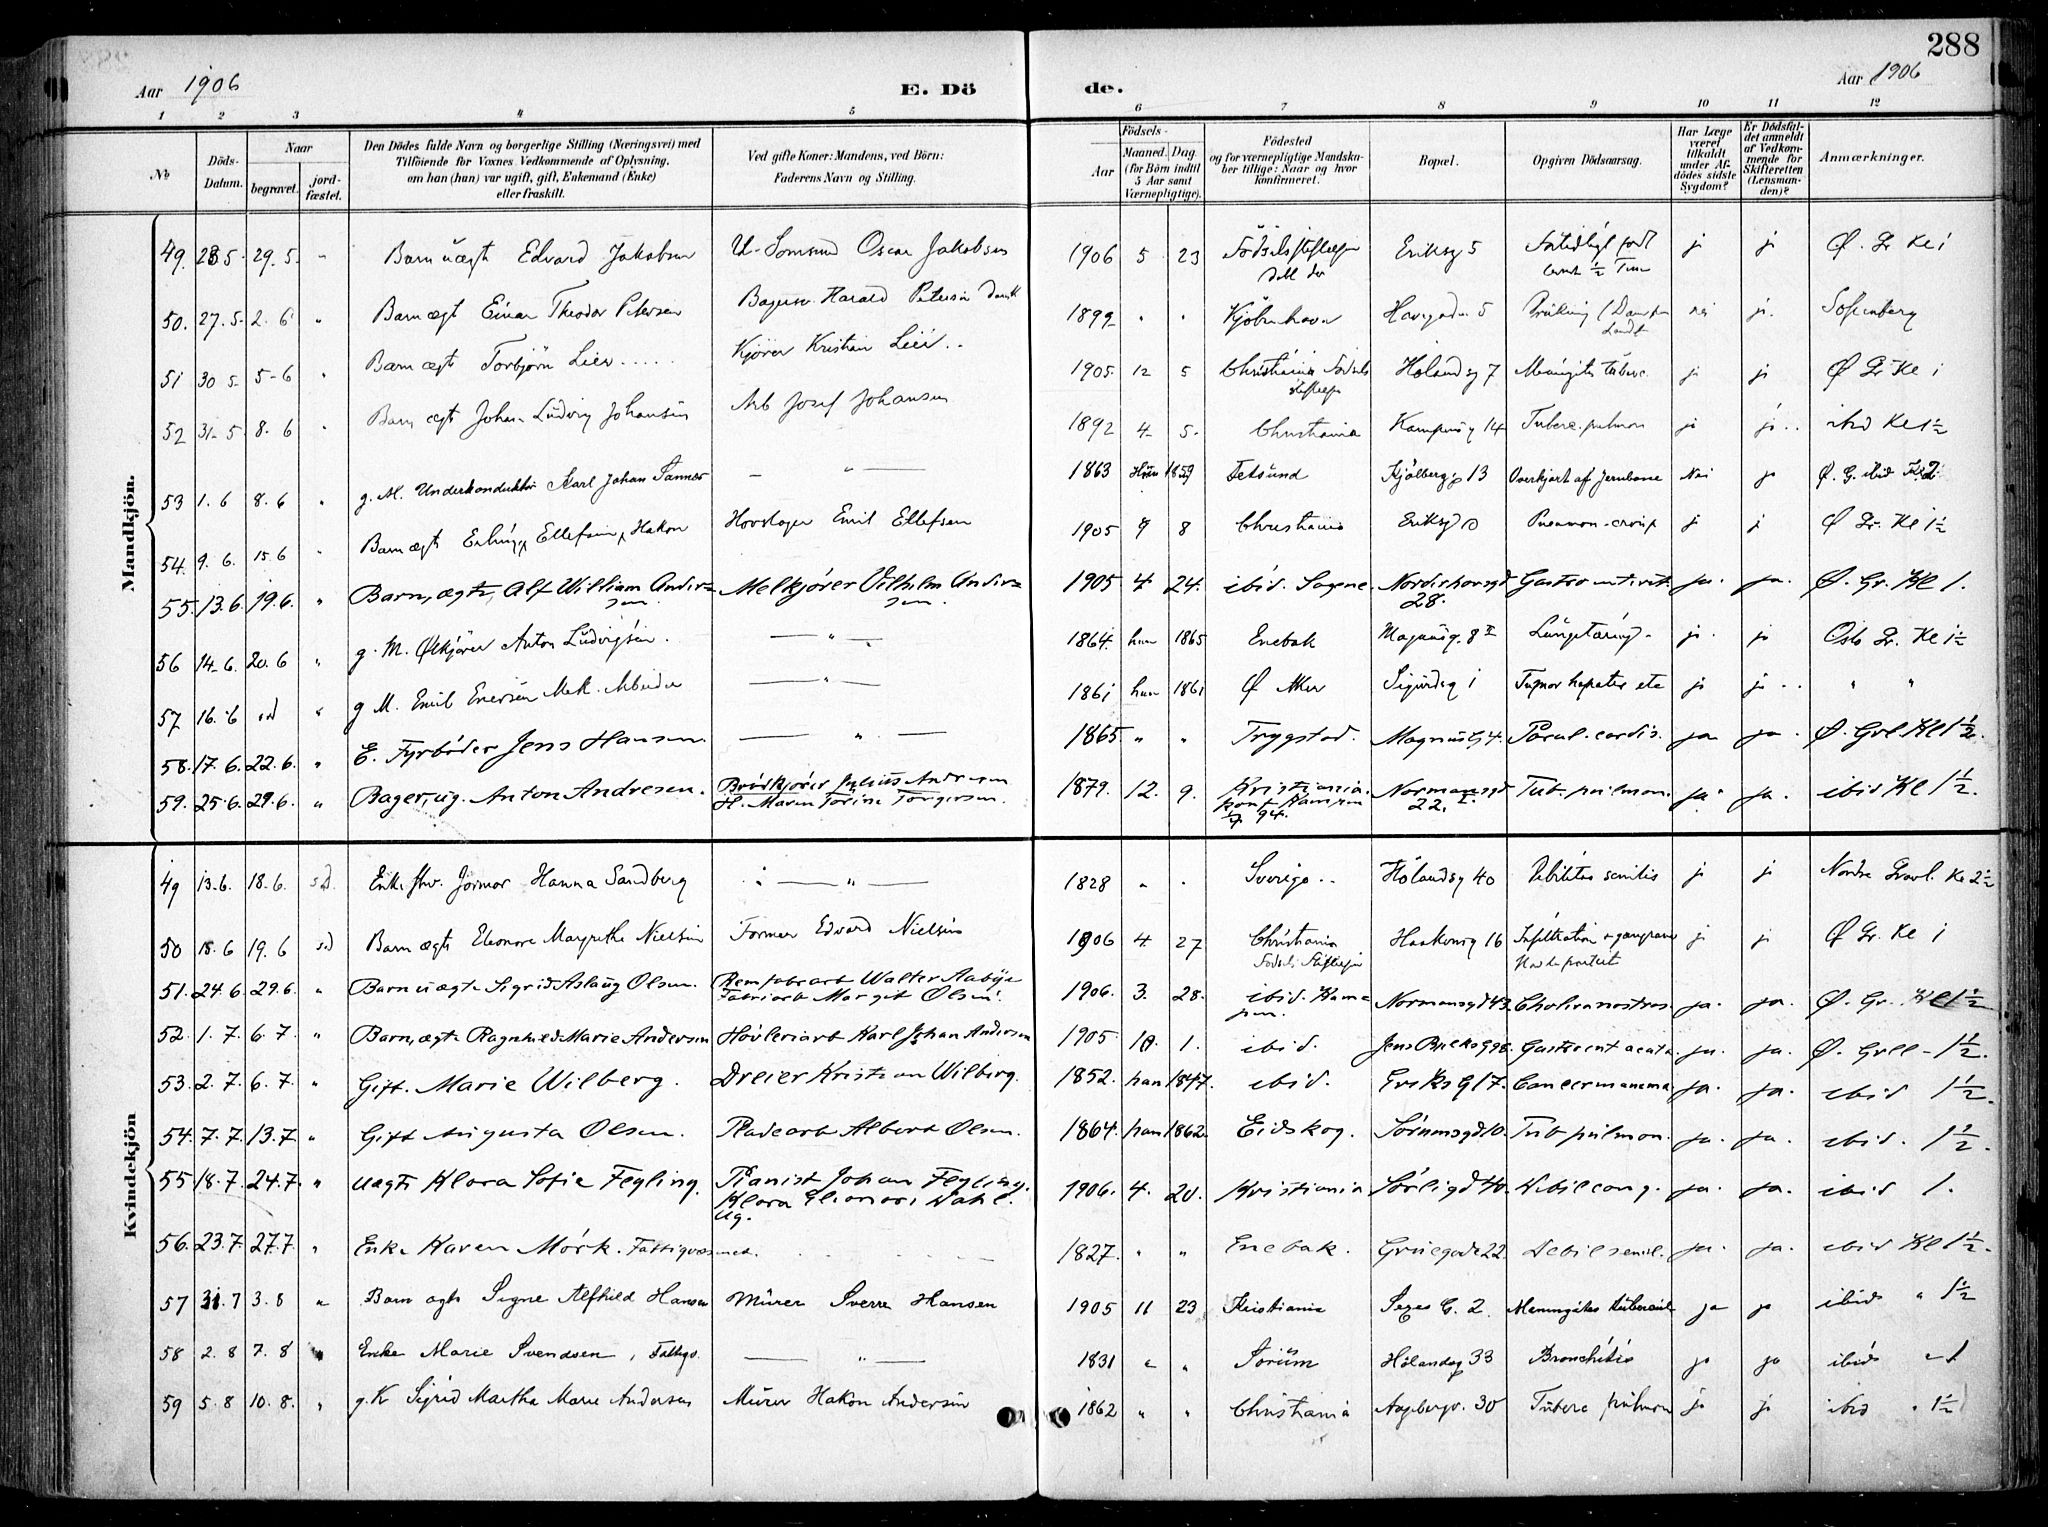 288
Aar 1906
E. Dö
de.
Aar 1906
1 2 3 4 5 6 7 8 9 10 11 12
No
Döds-
Datum.
Naar
begravet.
jord-
fæstet.
Den Dödes fulde Navn og borgerlige Stilling (Næringsvei) med
Tilföiende for Voxnes Vedkommende af Oplysning,
om han (hun) var ugift, gift, Enkemand (Enke)
eller fraskilt.
Ved gifte Koner: Mandens, ved Börn:
Faderens Navn og Stilling.
Födsels-
Aar
Maaned. Dag.
(for Börn indtil
5 Aar samt
Værnepligtige).
Födested
og for værnepligtige Mandska-
ber tillige: Naar og hvor
konfirmeret.
Bopæl.
Opgiven Dödsaarsag.
Har Læge
været
tilkaldt
under Af-
dödes sidste
Sygdom?
Er Dödsfal-
det anmeldt
af Vedkom-
mende for
Skifteretten
(Lensman-
den)?
Anmærkninger.
Mandkjön.
49. 28 5 29. 5. " Barn uægt Edvard Jakobsen Oscar Jakobsen 1906 5 23 Eriksg 5 ja ja Ø. Gr Kl 1
50. 27. 5. 2. 6 " Barn ægt Einar Theodor Petersen Harald Petersen 1899 " " Kjöbenhavn 5 nei ja. Sofienberg
51 30 5. 5-6 " Barn ægt Torbjörn Lier ..... Kjörer Kristian Lier .. 1905. 12 5 Christiania Fødsels
stiftelse Hölandsg 7 Meningitis tuberc. ja ja Ø Gr Kl 1
52 31-5 8. 6 " Barn ægt Johan Ludvig Johansen Arb Josef Johansen 1892 4 5. Christiania Kampensg 14 Tuberc. pulmon ja ja .. ibid Kl 1½
53 1. 6 8. 6 " g. M. Underkonduktör Karl Johan Sannes — " — 1863 Hun 1859 Fetsund Kjölbergg 13 Overkjørt af Jernbane Nei ja Ø. G. ibid Kl 2
54. 9. 6. 15. 6 " Barn ægt Erling Ellefsen Hakon Hovslager Emil Ellefsen 1905 9 8 Christiania Eriksg 10 Pneumon-croup j j Ø Gr. Kl 1½
55. 13. 6. 19. 6. " Barn, ægte, Alf William Ander=
sen. Melkjører Vilhelm Ander=
sen. 1905 4 24. ibid. Sagene. Nordishavsgd
28. Gastro enterit. ja. ja. Ø. Gr. Kl 1.
56 14-6. 20. 6 " g. M. Ølkjörer Anton Ludvigsen. — " — 1864. hun 1865 Enebak Magnusg. 8 I Lungetæring. ja. ja Oslo Gr. Kl 1½
57 16. 6 " g M. Emil Enersen Mek. Arbeider — " — 1861 hun 1861 Ø Aker Sigurdsg 1 Tumor hepatis etc ja ja .. " "
58. 17. 6. 22. 6. " E. Fyrbøder Jens Hansen. — " — 1865. " " Trygstad. Magnusg 4. Paral. cordis. ja ja. Ø. Grl Kl 1½.
59. 25. 6. 29. 6. " Bager, ug. Anton Andresen. Brødkjører Julius Andresen
H. Maren Torine Torgersen. 1879. 12. 9. Kristiania.
konf Kampen
94. Normansgd
22. I. Tub. pulmon. ja ja. ibid Kl 1½.
Kvindekjön
49 13-6. 18. 6. Enke fhv. Jormor Hanna Sandberg — " — 1828 " . Sverige .. Hölandsg 40 Debilitas senilis ja ja Nordre Gravl. Kl 2½
50 15. 6 19. 6 Barn ægte Eleonore Margrethe Nielsen Former Edvard Nielsen 1906 4 27 Christiania
Födsels Stiftelse Haakonsg 16 Infiltration + gangræne ja ja Ø Gr. Kl 1
51. 24. 6. 29. 6. " Barn uægte Sigrid Aslaug Olsen. Walter Aabye
Fabriarb Margit Olsen. 1906. 3. 28. ibid. Kam=
pen. Normansgd 43. Cholera nostras. ja. ja. Ø. Gr. Kl 1½
52. 1. 7. 6. 7. " Barn, ægte Ragnhild Marie Andersen Høvleriarb Karl Johan Andersen 1905. 10. 1. ibid. Jens Bjelkesg 98. Gastroent acuta. ja. ja. Ø. Grll - 1½.
53. 2. 7. 6. 7. " Gift. Marie Wilberg. Dreier Kristian Wilberg. 1852. han 1847. ibid. Eriksg 17. Cancer mamma ja. ja. ibid 1½.
54. 7. 7. 13. 7 " Gift Augusta Olsen. Pladearb Albert Olsen. 1864. han 1862. Eidskog. Sørumsgd 10. Tub pulmon. ja. ja. ibid. 1½.
55 18. 7. 24. 7. " uægte Klara Sofie Fegling. Pianist Johan Fegling.
Klara Elionore Dahl.
ug. 1906. 4. 20. Kristiania Sørligd 40. Debil cong. ja. ja. ibid 1.
56. 23. 7. 27. 7. " Enke Karen Mørk. Fattigvæsenet. 1827. " " Enebak. Grüegade 22. Debil senil. ja. ja. ibid Kl 1½.
57 31. 7 3. 8 " Barn ægte Signe Alfhild Hansen Mürer Sverre Hansen 1905 11 23 Kristiania Sexes G. 2 Meningitis tuberculosa ja ja ibid " 1½
58 2. 8 7. 8 " Enke Marie Svendsen, Fattigv. — " — 1831 " " Sörüm Hölandsg 33 Bronchitis ja ja ibid " 1
59 5. 8 10. 8. " g. K Sigrid Martha Marie Andersen Mürer Hakon Andersen 1862 " " Christiania Aagebergv. 30 Tuberc pulmon ja ja ibid " 1½